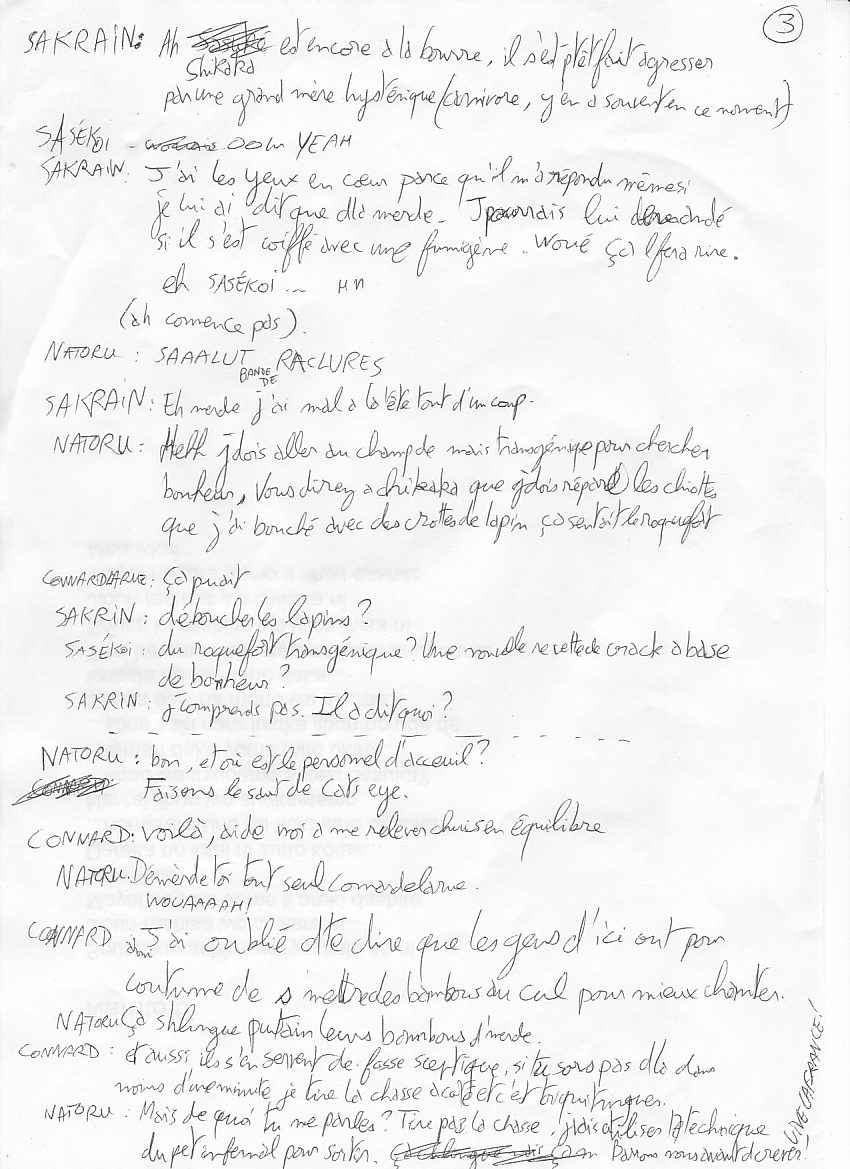 3
SAKRAIN: Ah est encore a la bourre, il s'est ptêt fait agresser
Shikaka
par une grand mère hystérique (carnivore, y'en a souvent en ce moment)
SASÉKOI - OOh YEAH
SAKRAIN: J'ai les yeux en cœur parce qu'il m'a répondu même si
je lui ai dit que dla merde. Jpourrais lui demandé
si il s'est coiffé avec une fumigène. Woué ça l'fera rire.
eh SASÉKOI ... HN
(ah comence pas).
NATORU : SAAALUT BANDE DE RACLURES
SAKRAIN: Eh merde j'ai mal a la tête tout d'un coup.
NATORU : Heh jdois aller au champ de mais transgénique pour chercher
bonheur, Vous direz a chikaka que jdois réparé les chiottes
que j'ai bouché avec des crottes de lapin ça sentait le roquefort
CONNARDLARVE : ça puait
SAKRIN : déboucher les lapins ?
SASÉKOI : du roquefort transgénique ? Une nouvelle recette de crack a base
de bonheur ?
SAKRIN : j'comprends pas. Il a dit quoi ?
NATORU : bon, et où est le personnel d'acceuil ?
CONNARD: Faisons le saut de Cats eye.
CONNARD: Voilà, aide moi a me relever chuis en équilibre
NATORU. Démerde toi tout seul Connardelarve.
WOUAAAAH!
CONNARD J'ai oublié dte dire que les gens d'ici ont pour
coutume de s'mettre des bambous au cul pour mieux chanter.
NATORU Ça shlingue putain leurs bambous d'merde.
CONNARD : et aussi ils s'en servent de fosse sceptique, si tu sors pas dla dans
moins d'une minute je tire la chasse a coté et c'est
NATORU : Mais de quoi tu me parles ? Tire pas la chasse. jvais utiliser la technique
du pet infernal pour sortir. Parons nous avant dcrever.
VIVE LA FRANCE!